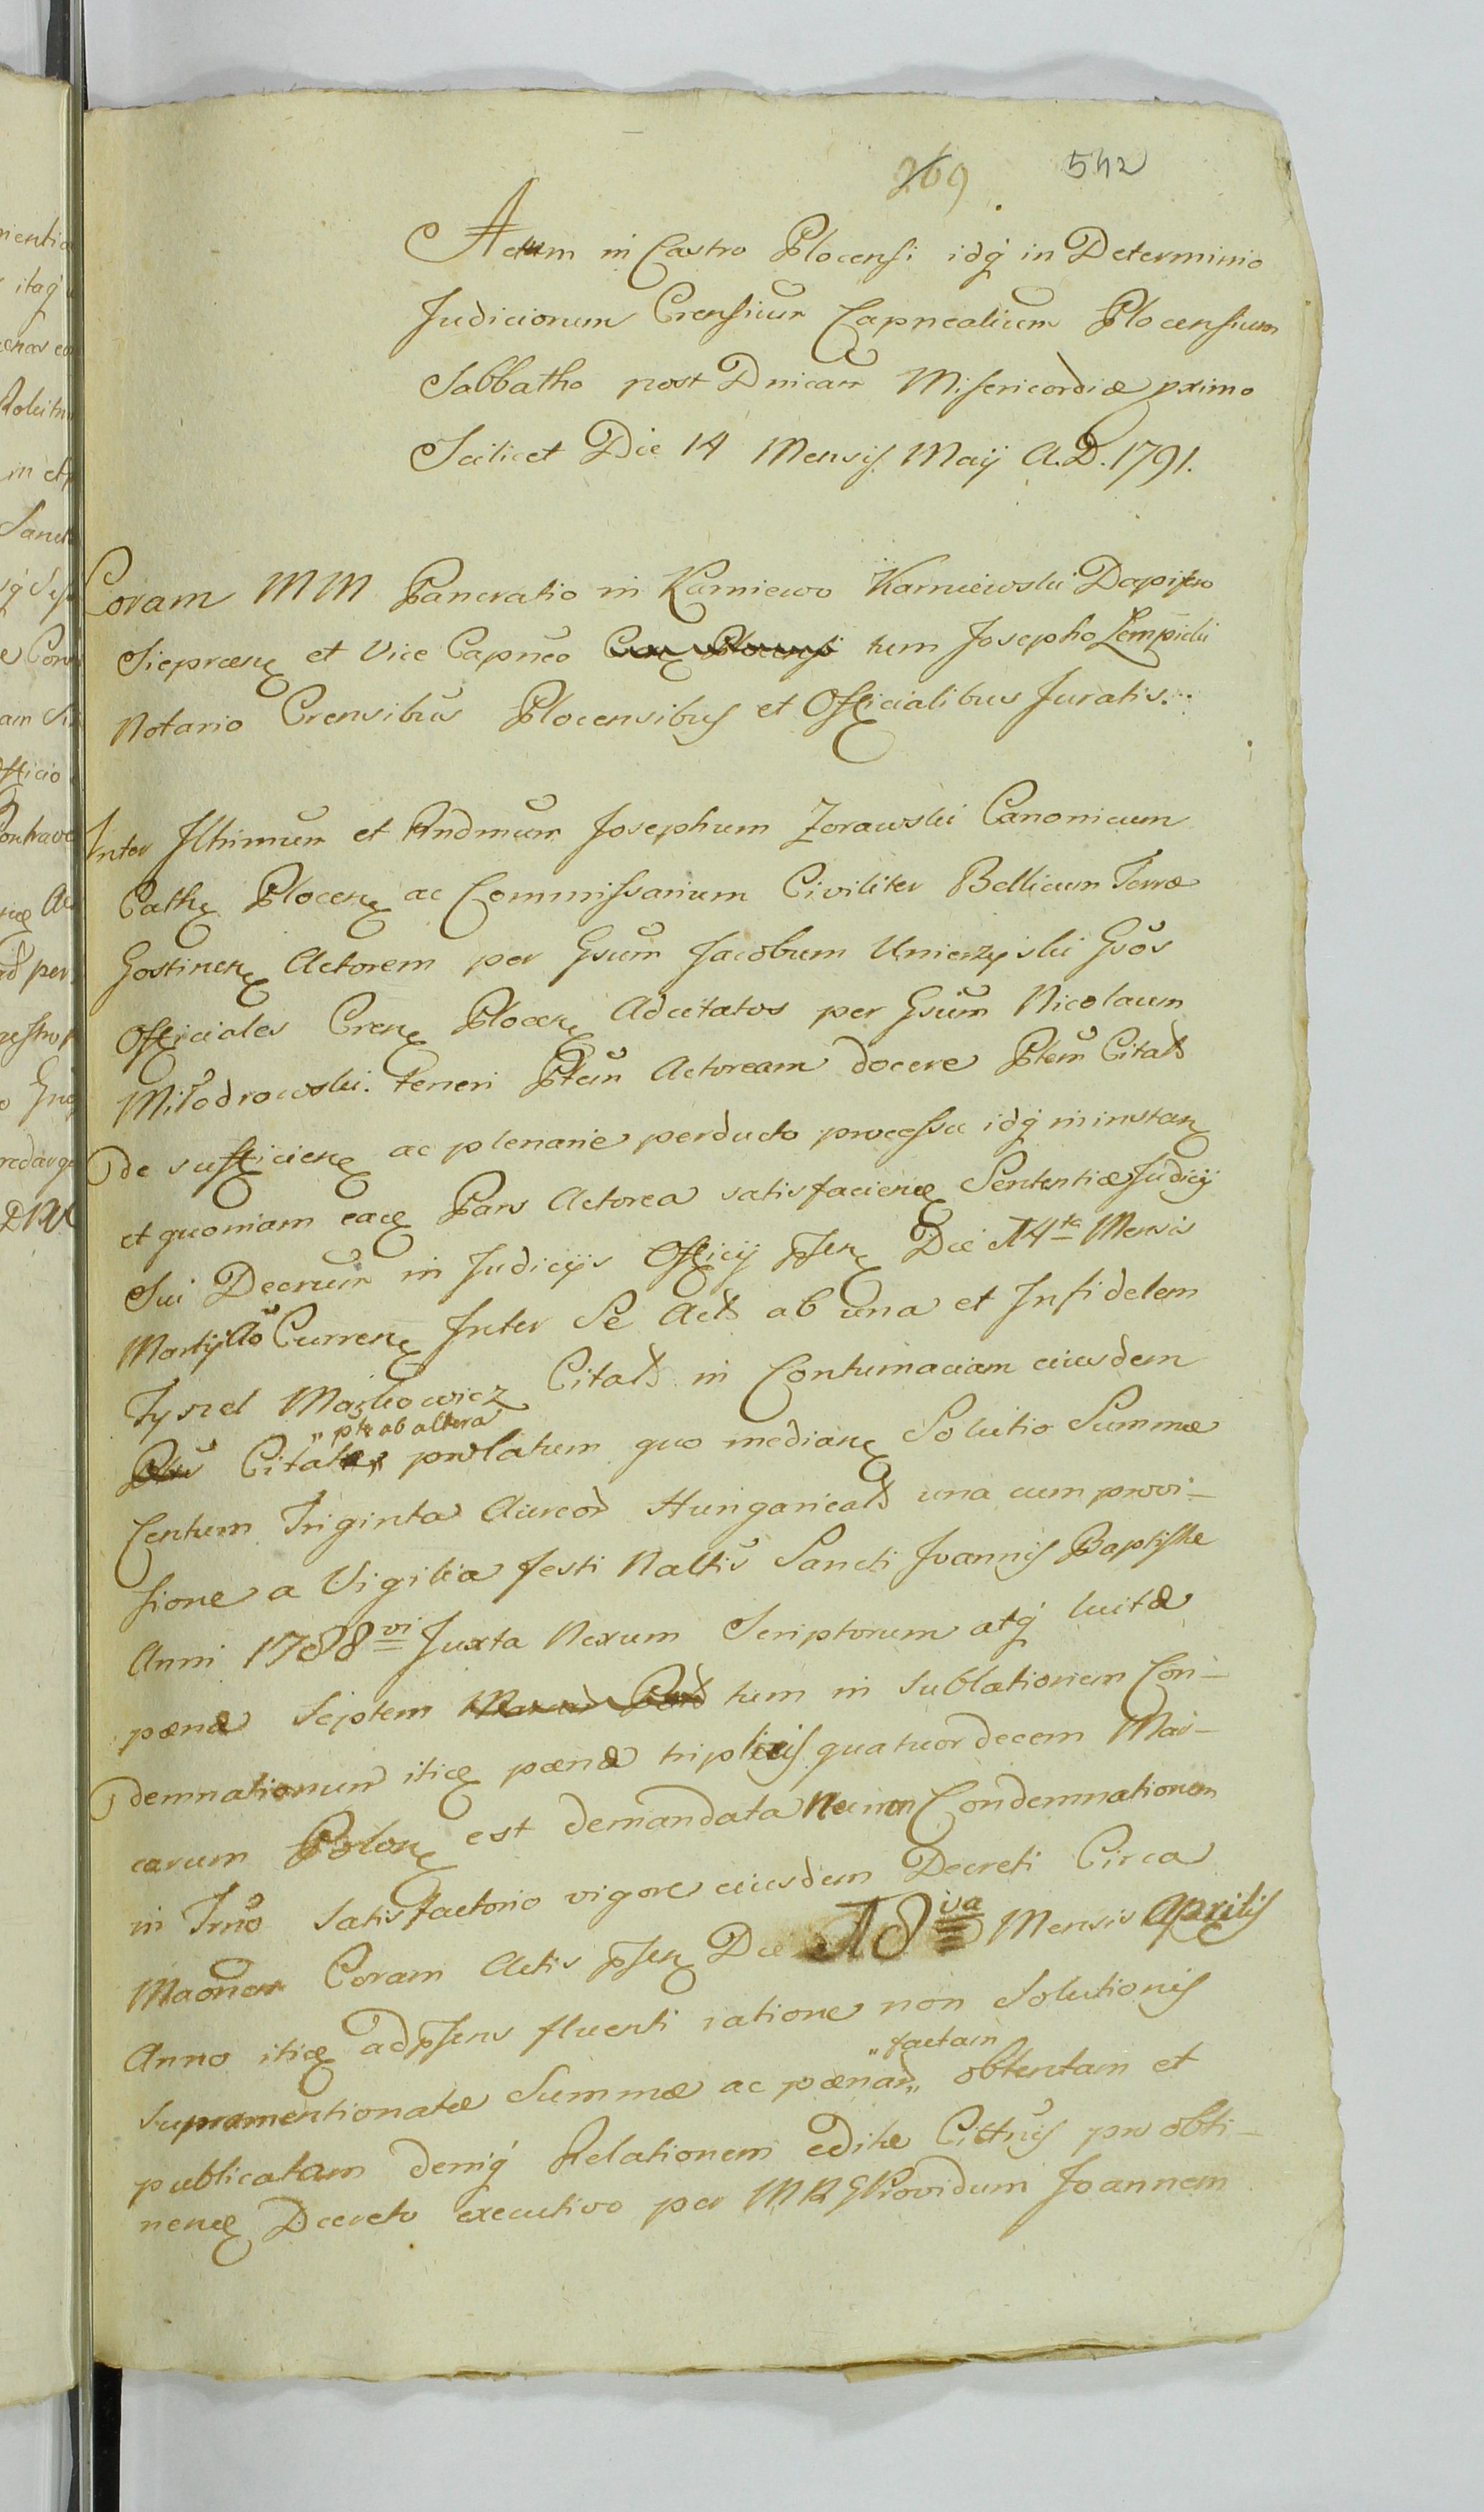 269 542
Actum in Castro Plocensi idq́ in Determinio
Judiciorum Crensium̄ Capnealium Plocensium
Sabbatho post Dnicam̄ Misericordiæ pximo
Scilicet Die 14 Mensis Maij A.D. 1791.
Coram MM Pancratio in Karniewo Karniewski Dapifero
Sieprcen et Vice Capneo tum Josepho Lempicki
Notario Crensibus Plocensibus et Officialibus Juratis.
Inter Illrimum et Rndmum Josephum Zorawski Canonicum
Cath Plocen ac Commissarium Civiliter Bellicum Terræ
Gostinen Actorem per Gsum Jacobum Umierzyski Gsos
Officiales Cren Plocen Adcitatos per Gsum Nicolaum
Miłodrowski. teneri Ptem Actoream docere Ptem Citatd
de sufficien ac plenarie perducto processu idq́ in instan
et quoniam eacq Pars Actorea satisfacienq Sententiæ Judicij
Sui Decrum in Judicijs Officij Psen Die 14ta Mensis
Martij Ao Curren Inter Se Actd ab una et Infidelem
Jyzrel Maskowicz Citatd in Contumaciam eiusdem
„ pte ab altera
Citatæ, prolatum quo median Solutio Summæ
Centum Triginta Aureod Hungaricald una cum provi-
sione a Vigilia festi Naltis Sancti Joannis Baptistæ
Anni 1788vi Juxta Nexum Scriptorum atq́ luitæ
pænæ Septem tum in Sublationem Con-
demnationum iticq pænæ triplicis quatuordecem Mar-
carum Polon est demandata Nec non Condemnationem
in Trno Satisfactorio vigore eiusdem Decreti Circa
Maonem Coram Actis Psen Die 18va Mensis Aprilis
Anno iticq adpsens fluenti ratione non Solutionis
„factam
supramentionatæ Summæ ac pænad„ obtentam et
publicatam deniq́ Relationem editæ Cittnis pro obti-
nenq Decreto executivo per MRGProvidum Joannem